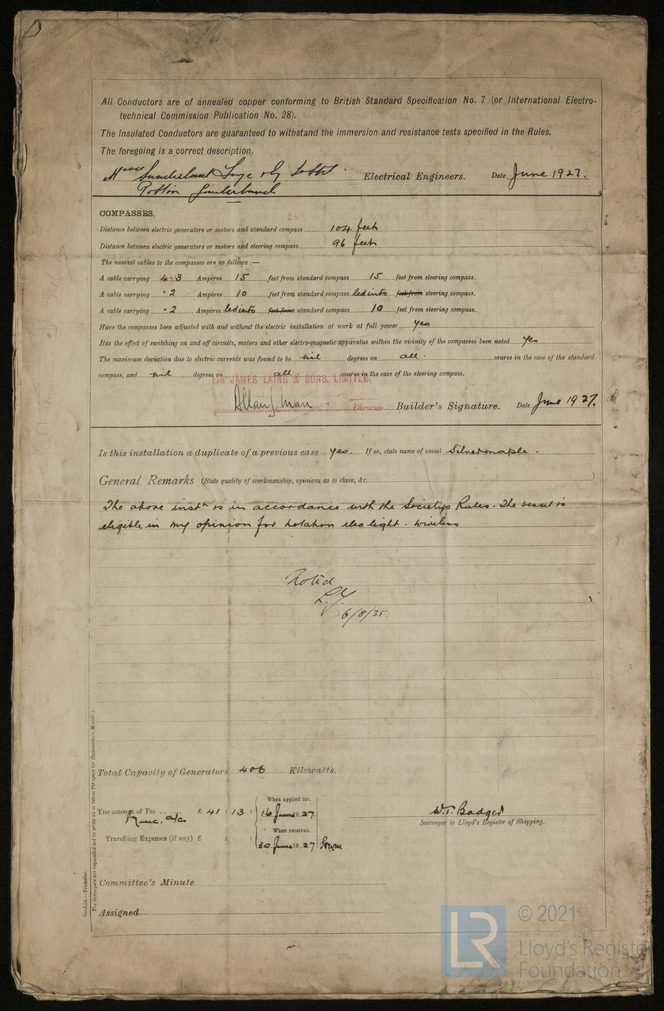 All Conductors are of annealed copper conforming to British Standard Specification No. 7 (or International Electro-
technical Commission Publication No. 28).
The Insulated Conductors are guaranteed to withstand the immersion and resistance tests specified in the Rules.
The foregoing is a correct description,
Electrical Engineers. Date June 1927.
COMPASSES.
Distance between electric generators or motors and standard compass 104 feet
Distance between electric generators or motors and steering compass 96 feet
The nearest cables to the compasses are as follows:—
A cable carrying 4.3 Ampères 15 feet from standard compass 15 feet from steering compass.
A cable carrying .2 Ampères 10 feet from standard compass led into feet from steering compass.
A cable carrying .2 Ampères led into feet from standard compass 10 feet from steering compass.
Have the compasses been adjusted with and without the electric installation at work at full power yes
Has the effect of switching on and off circuits, motors and other electro-magnetic apparatus within the vicinity of the compasses been noted yes
The maximum deviation due to electric currents was found to be nil degrees on all. course in the case of the standard
compass, and nil degrees on all course in the case of the steering compass.
JAMES LAING & SONS, LIMITED.
Director Builder's Signature. Date June 1927.
Is this installation a duplicate of a previous case yes. If so, state name of vessel Silvermaple.
General Remarks (State quality of workmanship, opinions as to class, &c.)
The above instn is in accordance with the Societys Rules. The vessel is
eligible in my opinion for notation elec light - wireless
Noted
6/8/35
Total Capacity of Generators 406 Kilowatts.
The amount of Fee ... £ 41 : 13 :
When applied for,
16 June 1927
Travelling Expenses (if any) £ : :
When received,
30 June 1927
W.T. Badger
Surveyor to Lloyd's Register of Shipping.
Committee's Minute
Assigned
LR
© 2021
Lloyd's Register
Foundation